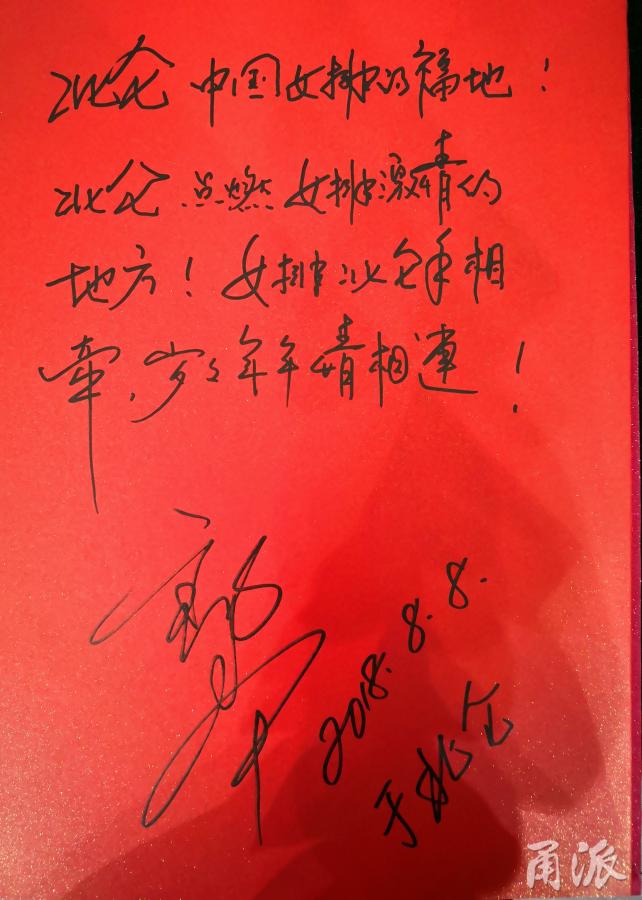 北仑 中国女排的福地！
北仑 点燃女排激情的
地方！女排北仑手相
牵，岁々年年情相连！
2018.8.8.
于北仑
甬派